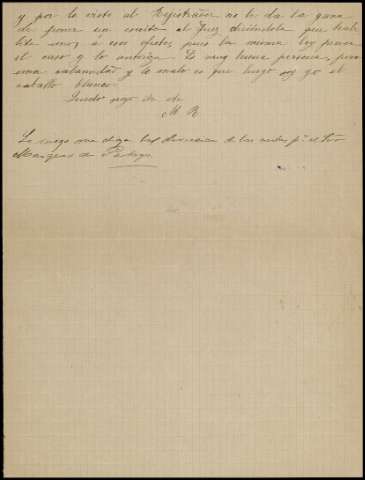 y por lo visto al Registrador no le da la gana
de poner un escrito al Juez diciéndole que
á esos efectos, pues la misma ley prevee
el caso y lo autoriza. Es muy buena persona, pero
una calamidad y lo malo es que luego soy yo el
caballo blanco.
Quedo suyo de
M R
Le ruego me diga la direccion de las p.ª el Señor
Marques de